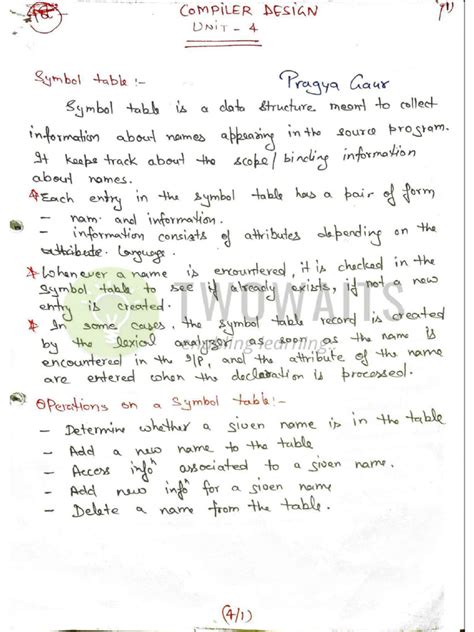 COMPILER DESIGN
UNIT - 4
Symbol table :-
Pragya Gaur
Symbol table is a data structure meant to collect
information about names appearing in the source program.
It keeps track about the scope/ binding information
about names.
Each entry in the symbol table has a pair of form
- nam. and information.
- information consists of attributes depending on the
attribute. language.
Whenever a name is encountered, it is checked in the
Symbol table to see if already exists, if not a new
entry is created.
In some cases, the symbol table record is created
by the lexical analyzer as soon as the name is
encountered in the I/P, and the attribute of the name
are entered when the declaration is processed.
TWOWAITS
Operations on a Symbol table:-
- Determine whether a given name is in the table
- Add a new name to the table
- Access infoⁿ associated to a given name.
- Add new infoⁿ for a given name
- Delete a name from the table.
(4/1)